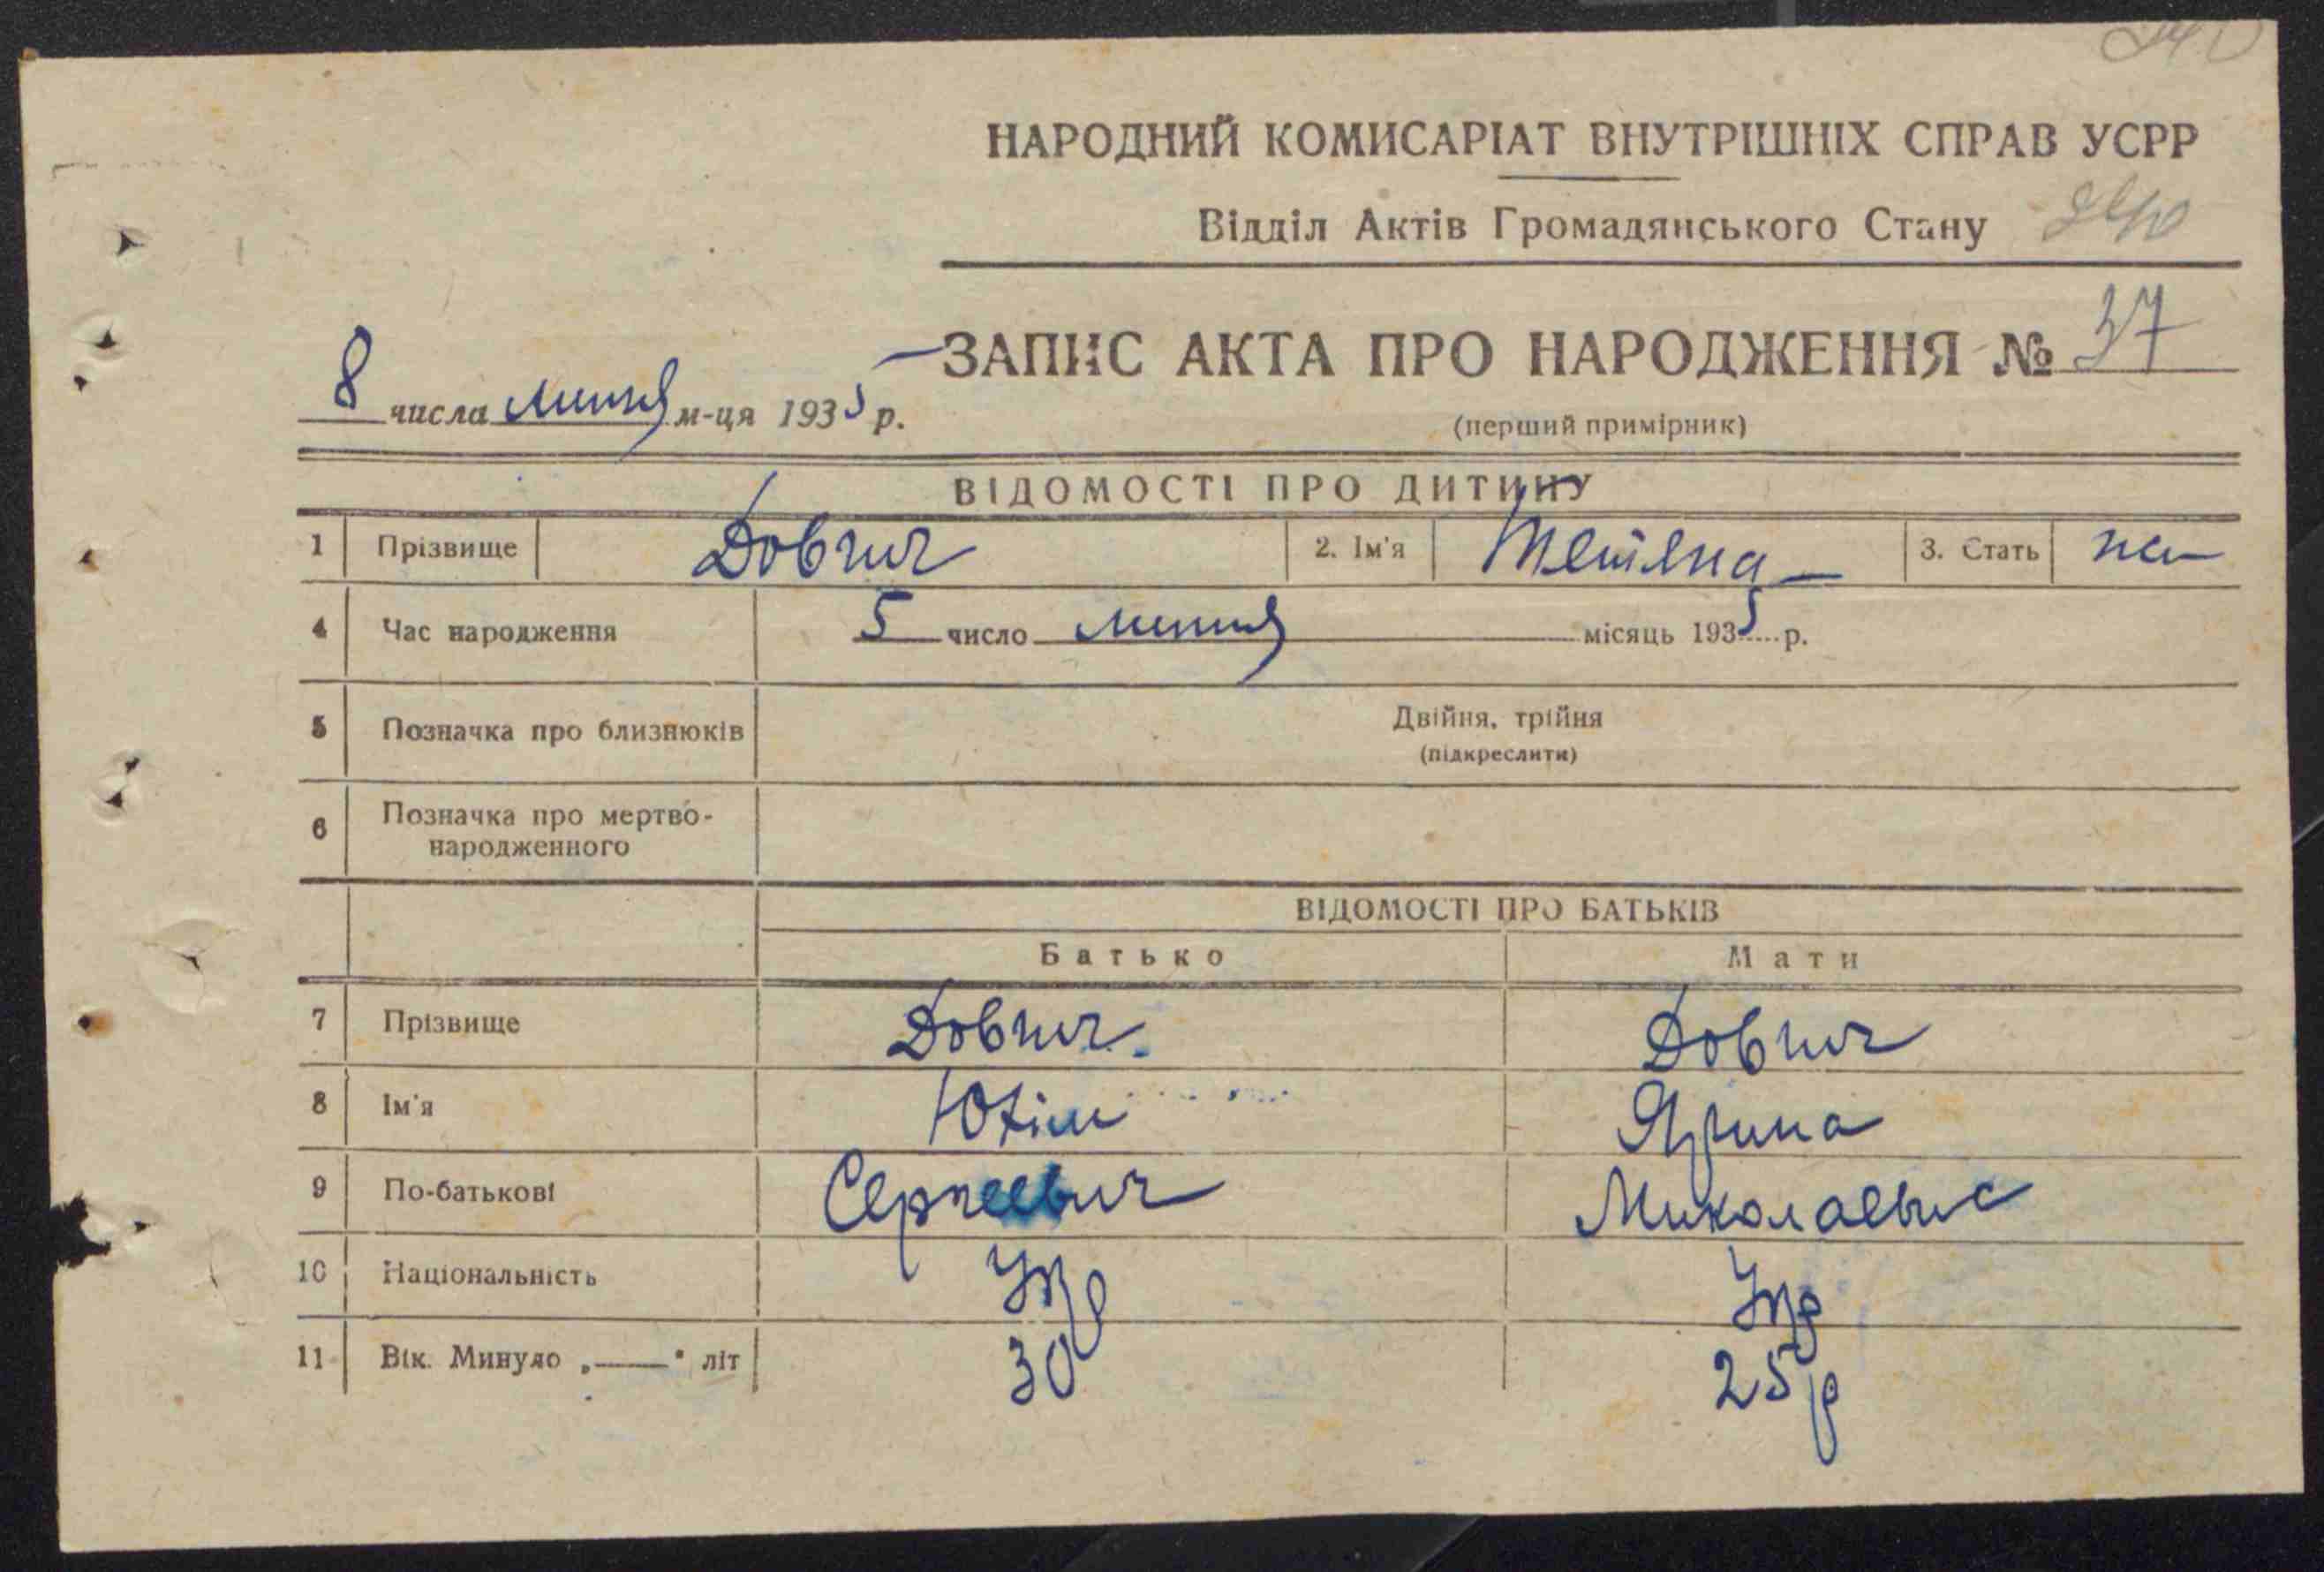 НАРОДНИЙ КОМИСАРІАТ ВНУТРІШНІХ СПРАВ УСРР
Відділ Актів Громадянського Стану
ЗАПИС АКТА ПРО НАРОДЖЕННЯ № 37
8 числа липня м-ця 1935 р.
(перший примірник)
ВІДОМОСТІ ПРО ДИТИНУ
1 Прізвище Довгич 2. Ім'я Тетяна 3. Стать
4 Час народження 5 число липня місяць 1935 р.
5 Позначка про близнюків Двійня, трійня
(підкреслити)
6 Позначка про мертво-
народженного
ВІДОМОСТІ ПРО БАТЬКІВ
Батько Мати
7 Прізвище Довгич Довгич
8 Ім'я Юхім Ярина
9 По-батькові Сергеевич
10 Національність Укр Укр
11 Вік. Минуло „——" літ 30 25 р